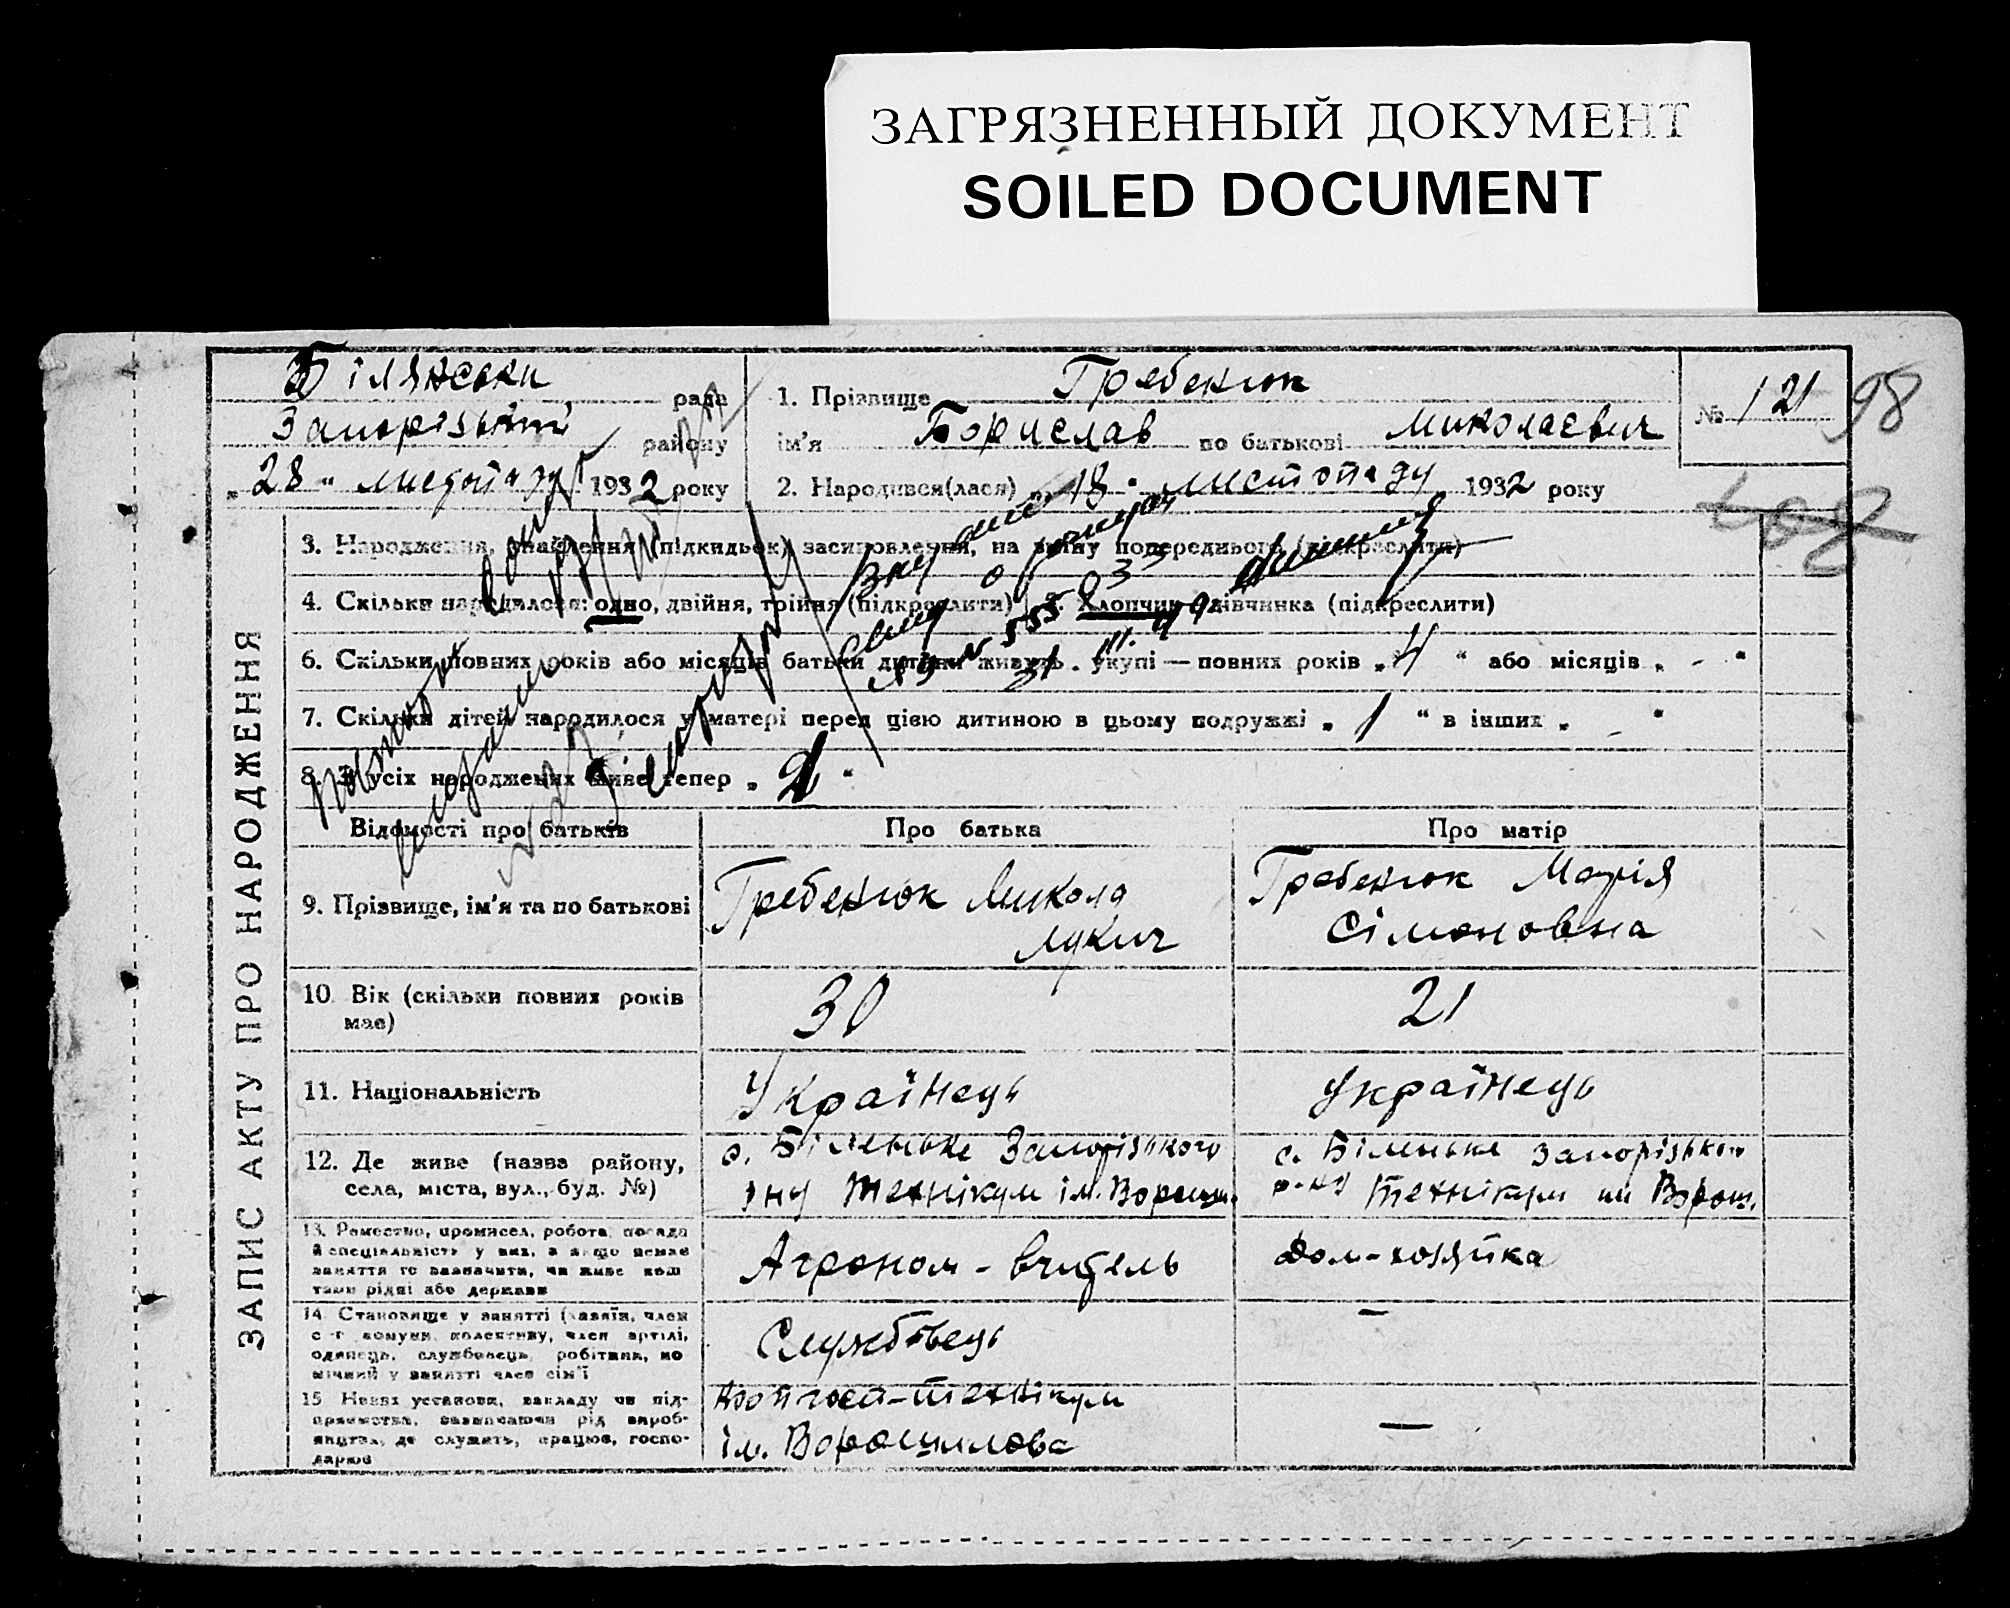 ЗАГРЯЗНЕННЫЙ ДОКУМЕНТ
SOILED DOCUMENT
ЗАПИС АКТУ ПРО НАРОДЖЕННЯ
Білянськи рада
Запорізький району
„28“ листопаду 1932 року
1. Прізвище Гребенюк
ім'я Борислав по батькові Миколаєвич
2. Народився(лася) „18“ листопаду 1932 року
№ 121
98
108
3. Народження, знайдення (підкидьок) засиновлення, на зміну попереднього (підкреслити)
4. Скільки народилося: одно, двійня, трійня (підкреслити) 5. Хлопчик дівчинка (підкреслити)
6. Скільки повних років або місяців батьки дитини живуть укупі — повних років „4“ або місяців „-“
7. Скільки дітей народилося у матері перед цією дитиною в цьому подружжі „1“ в інших „-“
8. З усіх народжених живе тепер „2“
Повторное
свид о
№ 555
Відомості про батьків
Про батька
Про матір
9. Прізвище, ім'я та по батькові
Гребенюк Микола
Лукич
Гребенюк Марія
Сімоновна
10. Вік (скільки повних років
має)
30
21
11. Національність
Українець
Українець
12. Де живе (назва району,
села, міста, вул., буд. №)
с. Біленьке Запорізького
рну Технікум ім. Ворошил.
с. Біленьке Запорізьког
р-ну Технікум ім Ворош.
13. Ремество, промисел, робота, посада
й спеціяльність у них, а якщо немає
заняття то зазначити, чи живе кош
тами рідні або держави
Агроном - вчитель
Дом-хозяйка
14. Становище у занятті (хазяїн, член
с-г комуни, колективу, член артілі,
одинець, службовець, робітник, по
мічний у занятті член сім'ї
Службовець
—
15. Назва установи, закладу чи під-
приємства, зазначаючи рід вироб-
ництва, де служить, працює, госпо-
дарює
технікум
ім. Ворошилова
—